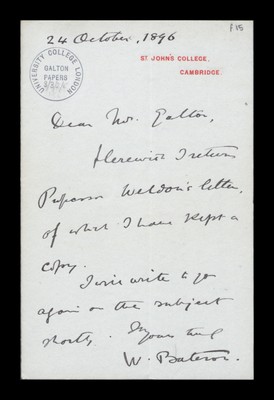 24 October, 1896
f.15
ST JOHN'S COLLEGE,
CAMBRIDGE.
UNIVERSITY COLLEGE LONDON
GALTON
PAPERS
Dear Mr. Galton,
Herewith I return
Professor Weldon's letter,
of which I have kept a
copy.
I will write to you
again on the subject
shortly. Yours truly
W. Bateson.